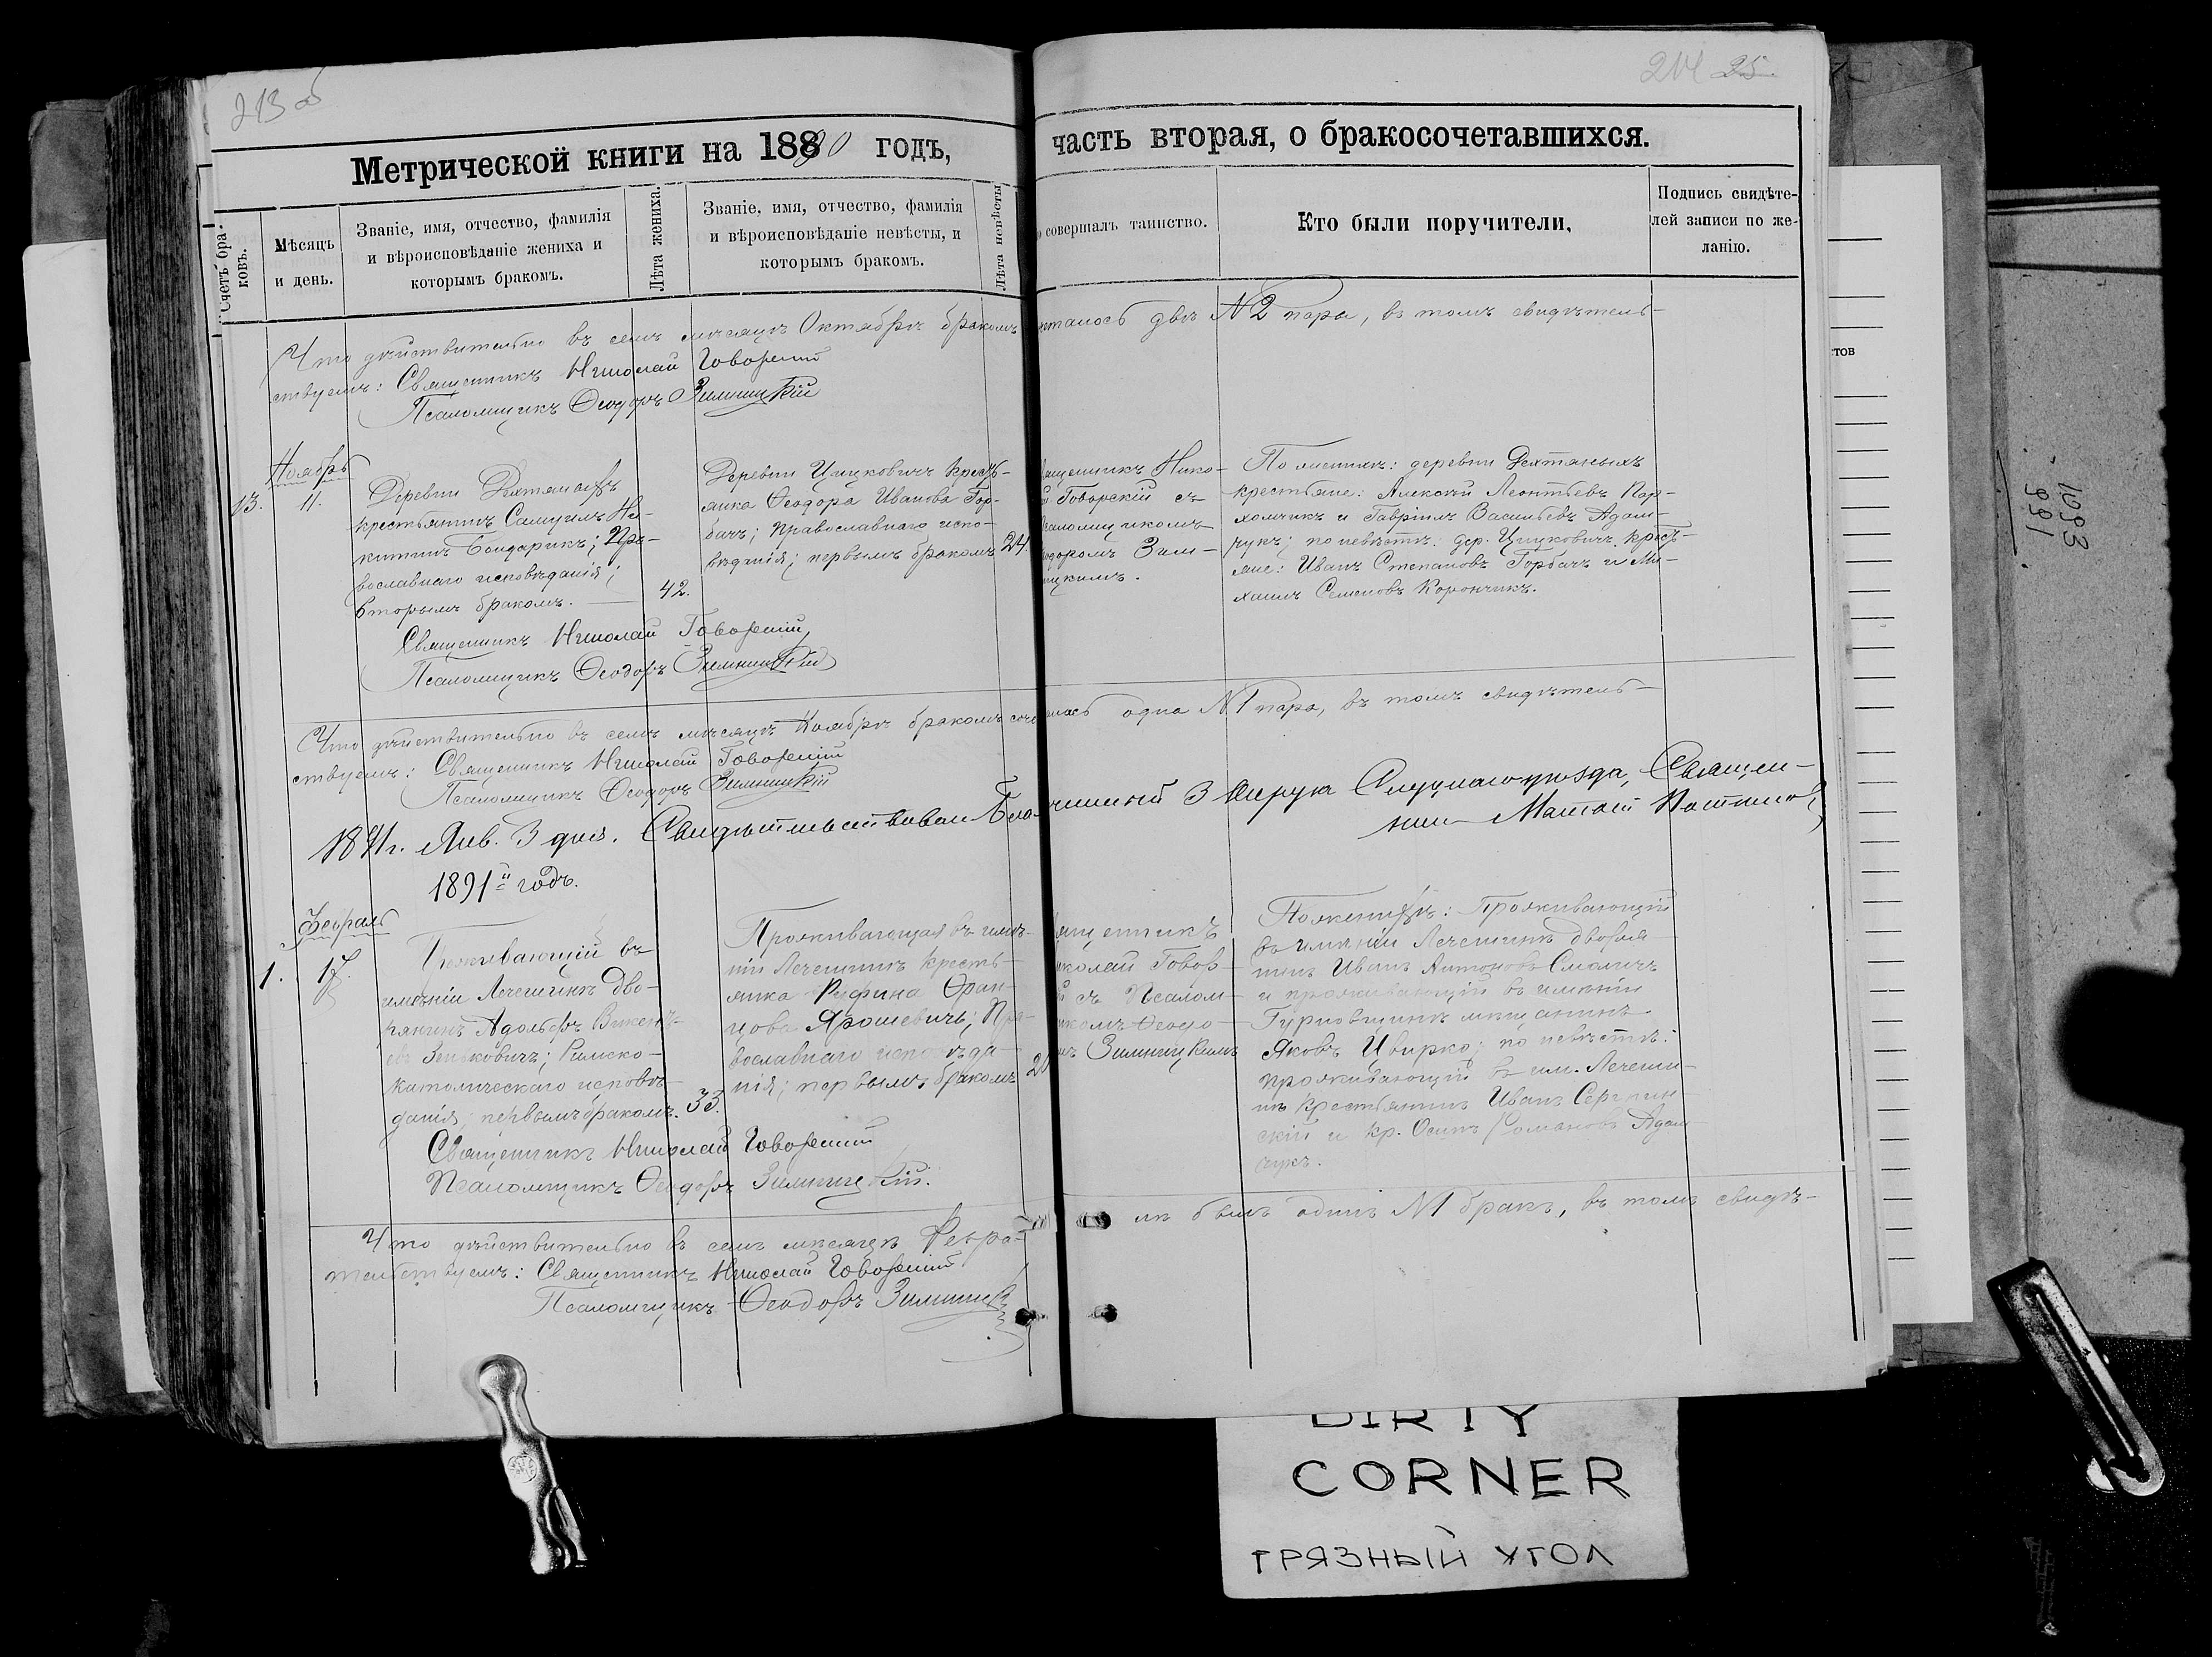 213 об
214 25
Метрической книги на 1890 годъ,
часть вторая, о бракосочетавшихся.
Счетъ бра-
ковъ.
Мѣсяцъ
и день.
Званіе, имя, отчество, фамилія
и вѣроисповѣданіе жениха и
которымъ бракомъ.
Лѣта жениха.
Званіе, имя, отчество, фамилія
и вѣроисповѣданіе невѣсты, и
которымъ бракомъ.
Лѣта невѣсты
совершалъ таинство.
Кто были поручители,
Подпись свидѣте-
лей записи по же-
ланію.
Что дѣйствительно въ семъ мѣсяцѣ Октябрѣ бракомъ
еталось двѣ №2 пары, въ томъ свидѣтель-
ствуемъ: Священникъ Николай Говорскій
Псаломщикъ Ѳеодоръ Зимницкій
Ноябрь
13.
11.
Деревни
крестьянинъ Самуилъ Ни-
китинъ Бондарикъ; Пра-
вославнаго исповѣданія;
вторымъ бракомъ.
42.
Деревни Цицковичъ кресть-
янка Ѳеодора Иванова Гор-
бачъ; православнаго испо-
вѣданія; первымъ бракомъ
24.
ященникъ Нико-
й Говорскій съ
саломщикомъ
одоромъ Зим-
ницкимъ.
По женихѣ: деревни
крестьяне: Алексѣй Леонтьевъ Пар-
хомчикъ и Гавріилъ Васильевъ Адам-
чукъ; по невѣстѣ: дер. Цицковичъ крестъ-
яне: Иванъ Степановъ Горбачъ и Ми-
хаилъ Семеновъ Корончикъ.
Священникъ Николай Говорскій,
Псаломщикъ Ѳеодоръ Зимницкій
Что дѣйствительно въ семъ мѣсяцѣ Ноябрѣ бракомъ соче
алась одна №1 пара, въ томъ свидѣтель-
ствуемъ: Священникъ Николай Говорскій
Псаломщикъ Ѳеодоръ Зимницкій
1891г. Янв. 3 дня. Свидѣтельствовалъ Бла-
гочинный 3 округа Слуцкаго уѣзда, Священ-
никъ
1891й годъ.
Февраль
1.
17.
Проживающій въ
имѣніи Лечешинѣ дво-
рянинъ Адольфъ Викенть-
евъ Зеньковичъ; Римско-
католическаго исповѣ-
данія; первымъ бракомъ.
33.
Проживающая въ имѣ-
ніи Лечешинѣ кресть-
янка Руфина Фран-
цова Ярошевичъ; Пра-
вославнаго исповѣда-
нія; первымъ бракомъ
ященникъ
иколай Говор-
й съ Псалом-
икомъ Ѳеодо-
мъ Зимницкимъ
По женихѣ: Проживающій
въ имѣніи Лечешинѣ дворя-
нинъ Иванъ Антоновъ Смоличъ
и проживающій въ имѣніи
Гурновщинѣ мѣщанинъ
Яковъ Цвирко; по невѣстѣ:
проживающій въ им. Лечеши-
нѣ крестьянинъ Иванъ
скій и кр. Осипъ Романовъ Адам-
чукъ.
Священникъ Николай Говорскій
Псаломщикъ Ѳеодоръ Зимницкій.
Что дѣйствительно въ семъ мѣсяцѣ Февра-
лѣ былъ одинъ №1 бракъ, въ томъ свидѣ-
тельствуемъ: Священникъ Николай Говорскій
Псаломщикъ Ѳеодоръ Зимницкій
тов
1093
991
DIRTY
CORNER
ГРЯЗНЫЙ УГОЛ